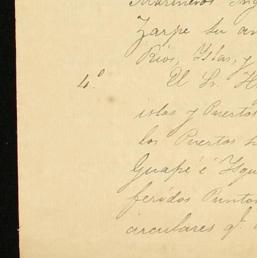 Marineros Ing
Zarpe su an
Rios, Yslas, y
4.º El Sr. H
islas y Puertos
los Puertos h
Guapé é Ysqu
feridos Puntos
circulares q.e